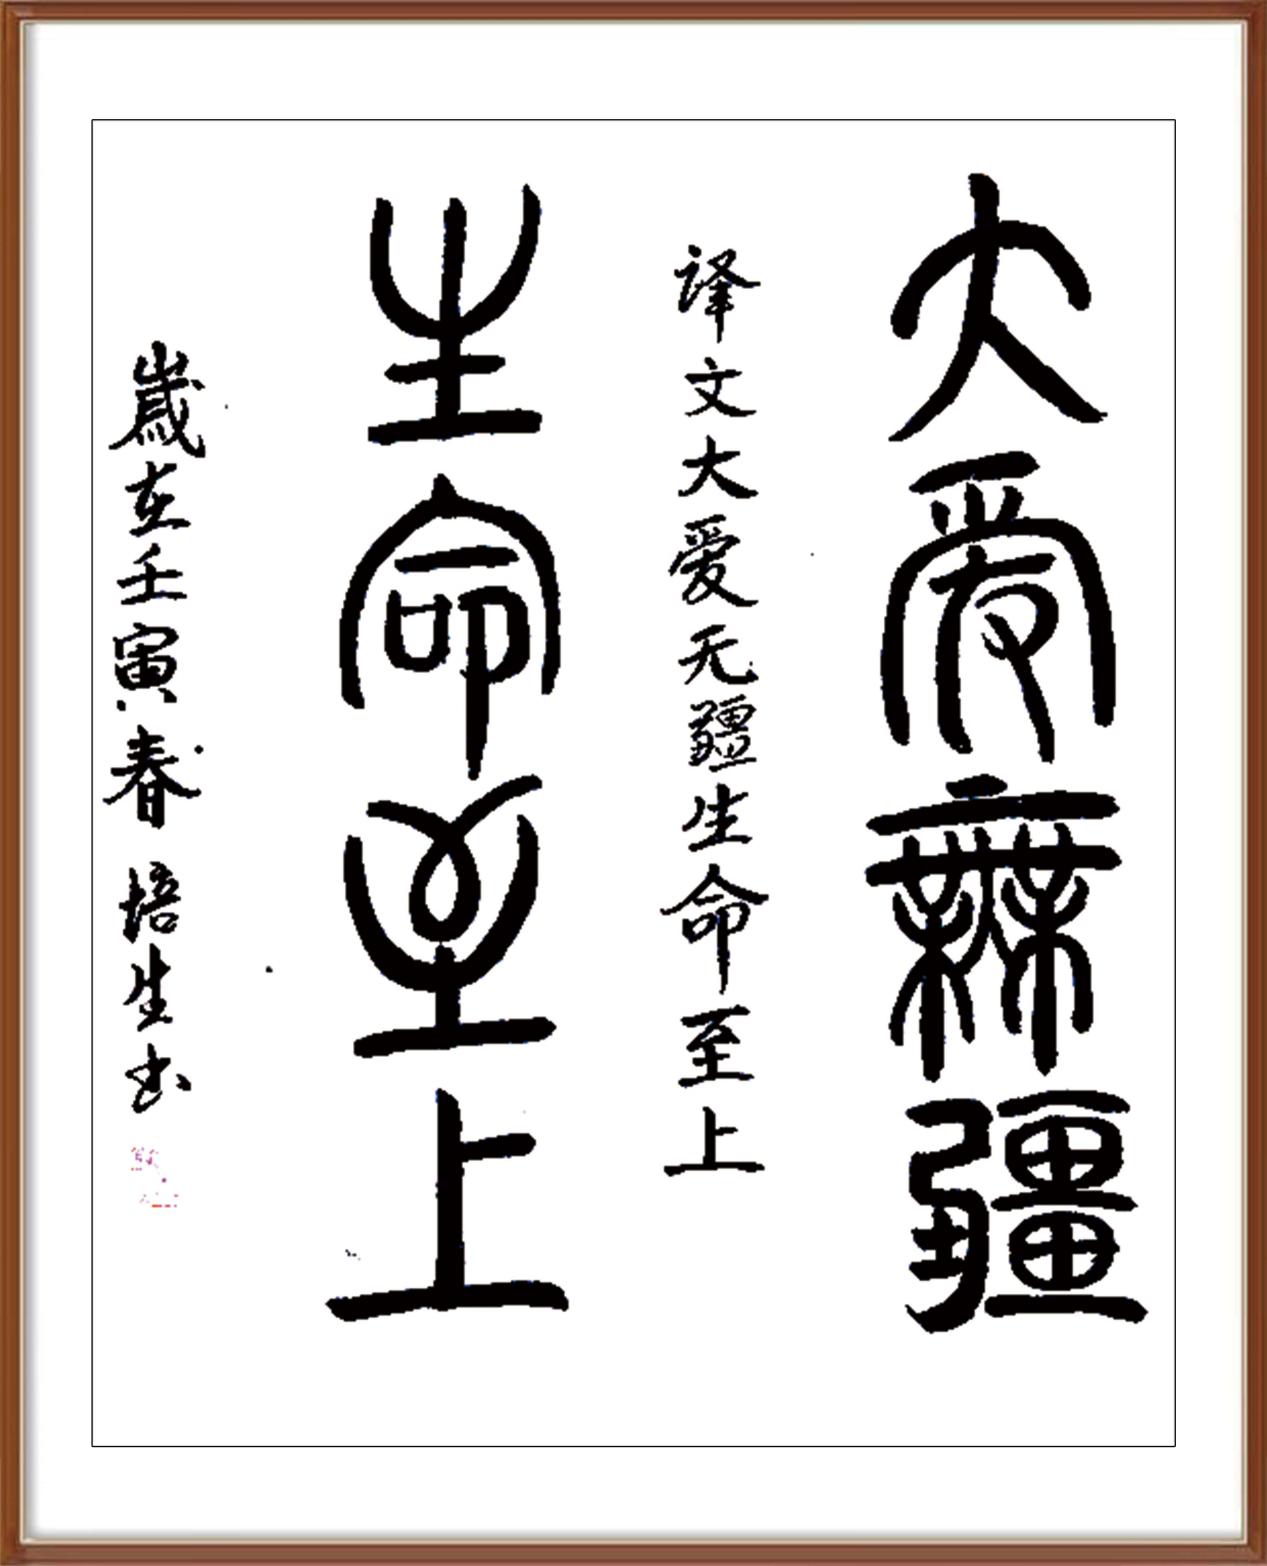 大爱無疆
译文大爱无疆生命至上
生命至上
歲在壬寅春培生书